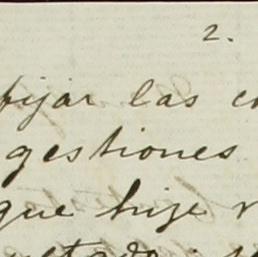 2.
fijar las
gestiones
que hize